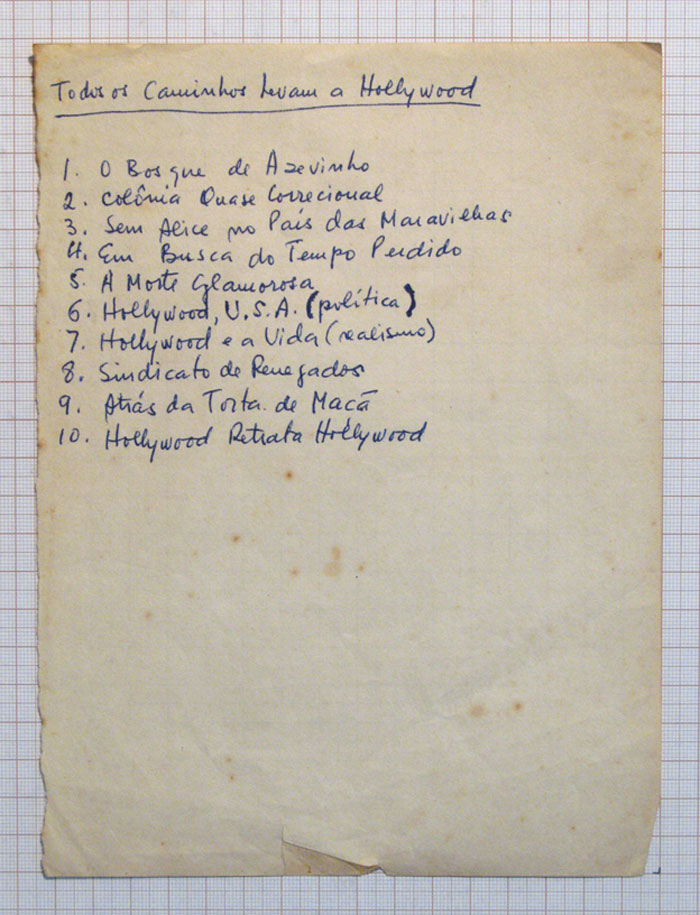 Todos os Caminhos Levam a Hollywood
1. O Bosque de Azevinho
2. Colônia Quase Correcional
3. Sem Alice no País das Maravilhas
4. Em Busca do Tempo Perdido
5. A Morte Glamorosa
6. Hollywood, U.S.A. (política)
7. Hollywood e a Vida (realismo)
8. Sindicato de Renegados
9. Atrás da Torta de Maçã
10. Hollywood Retrata Hollywood